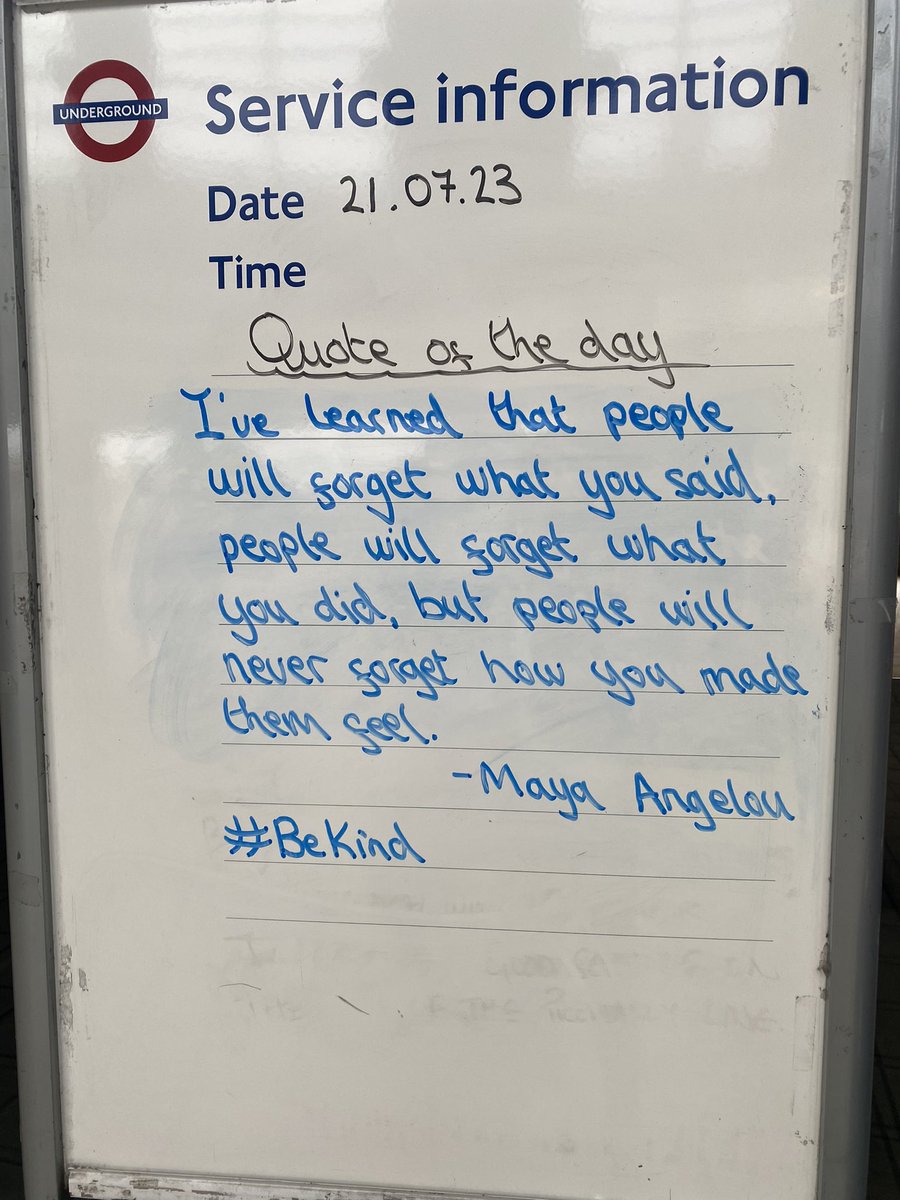 UNDERGROUND
Service information
Date 21.07.23
Time
Quote of the day
I've learned that people
will forget what you said,
people will forget what
you did, but people will
never forget how you made
them feel.
-Maya Angelou
#BeKind